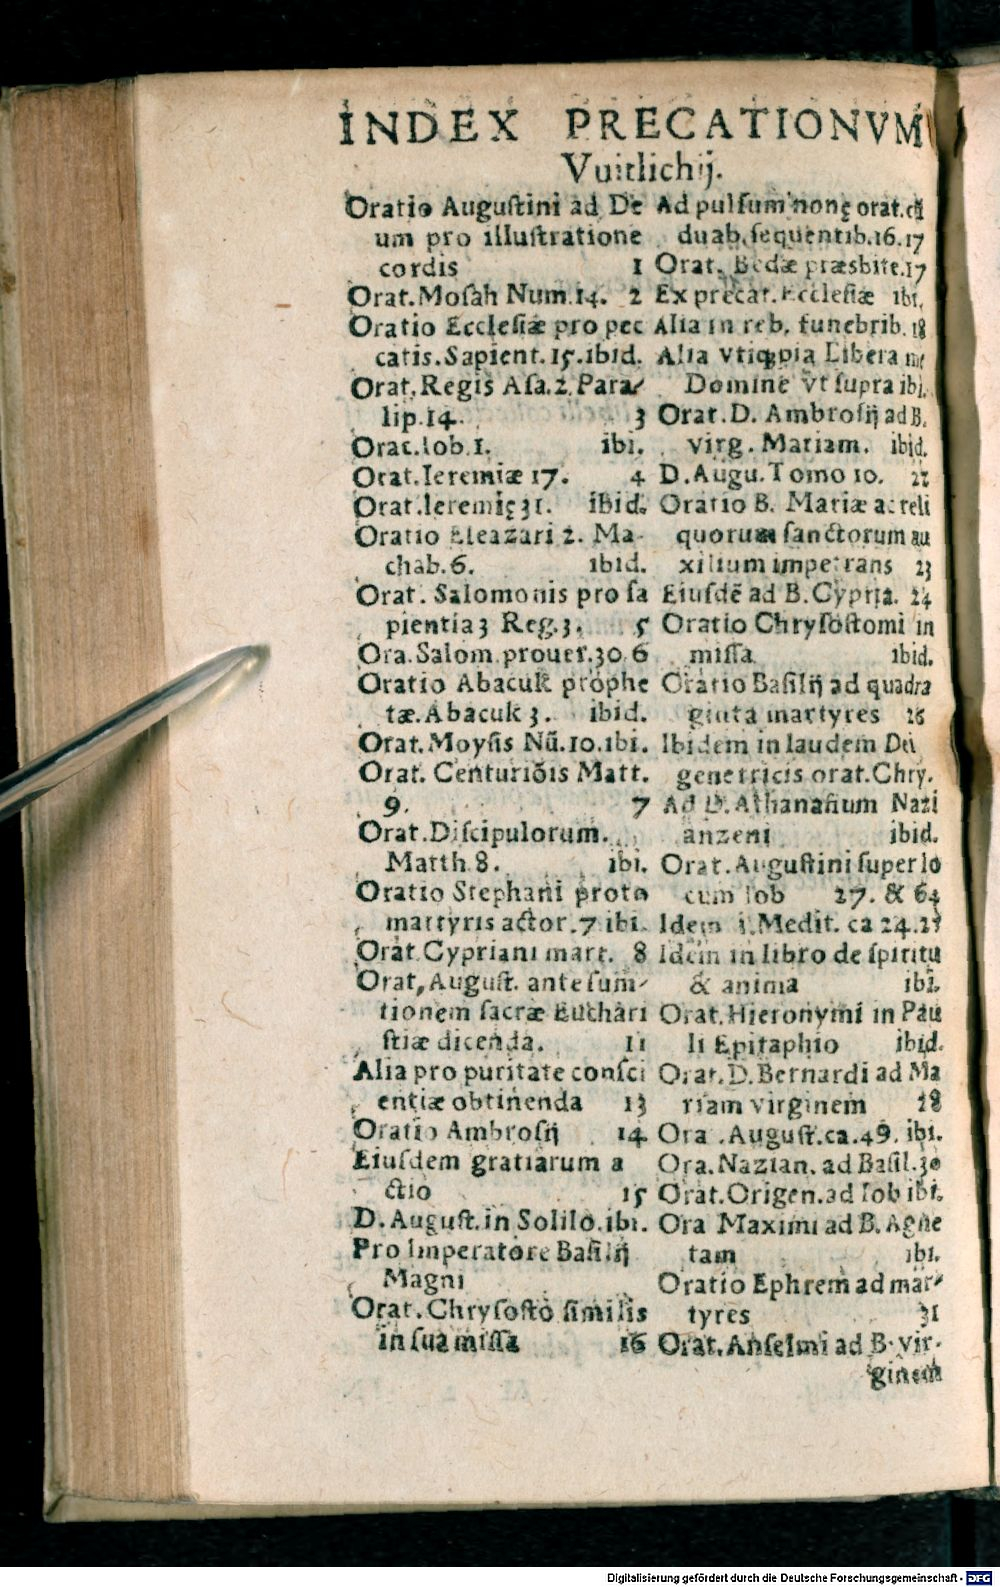 INDEX PRECATIONVM
Vuitlichij.
Oratio Augustini ad De
um pro illustratione
cordis 1
Orat. Mosah Num. 14. 2
Oratio Ecclesiæ pro pec
catis. Sapient. 15. ibid.
Orat. Regis Asa. 2. Para-
lip. 14. 3
Orat. Iob. 1. ibi.
Orat. Ieremiæ 17. 4
Orat. Ieremię 31. ibid.
Oratio Eleazari 2. Ma-
chab. 6. ibid.
Orat. Salomonis pro sa
pientia 3 Reg. 3. 5
Ora. Salom. prouer. 30. 6
Oratio Abacuk prophe
tæ. Abacuk 3. ibid.
Orat. Moysis Nũ. 10. ibi.
Orat. Centuriõis Matt.
9. 7
Orat. Discipulorum.
Matth. 8. ibi.
Oratio Stephani proto
martyris actor. 7 ibi.
Orat. Cypriani mart. 8
Orat, August. ante sum-
tionem sacræ Euchari
stiæ dicenda. 11
Alia pro puritate consci
entiæ obtinenda 13
Oratio Ambrosij 14
Eiusdem gratiarum a
ctio 15
D. August. in Solilo. ibi.
Pro Imperatore Basilij
Magni
Orat. Chrysosto similis
in sua missa 16
Ad pulsum nonę orat. cũ
duab. sequentib. 16. 17
Orat. Bedæ præsbite. 17
Ex precat. Ecclesiæ ibi.
Alia in reb. funebrib. 18
Alia Libera me
Domine vt supra ibi.
Orat. D. Ambrosij ad B.
virg. Mariam. ibid.
D. Augu. Tomo 10. 22
Oratio B. Mariæ ac reli
quorum sanctorum au
xilium impetrans 23
Eiusdẽ ad B. Cypria. 24
Oratio Chrysostomi in
missa ibid.
Oratio Basilij ad quadra
ginta martyres 26
Ibidem in laudem Dei
genetricis orat. Chry.
Ad D. Athanasium Nazi
anzeni ibid.
Orat. Augustini super lo
cum Iob 27. & 64
Idem i. Medit. ca 24. 27
Idem in libro de spiritu
& anima ibi.
Orat. Hieronymi in Pau
li Epitaphio ibid.
Orat. D. Bernardi ad Ma
riam virginem 28
Ora. August. ca. 49. ibi.
Ora. Nazian. ad Basil. 30
Orat. Origen. ad Iob ibi.
Ora Maximi ad B. Agne
tam ibi.
Oratio Ephrem ad mar-
tyres 31
Orat. Anselmi ad B. vir-
ginem
Digitalisierung gefördert durch die Deutsche Forschungsgemeinschaft - DFG